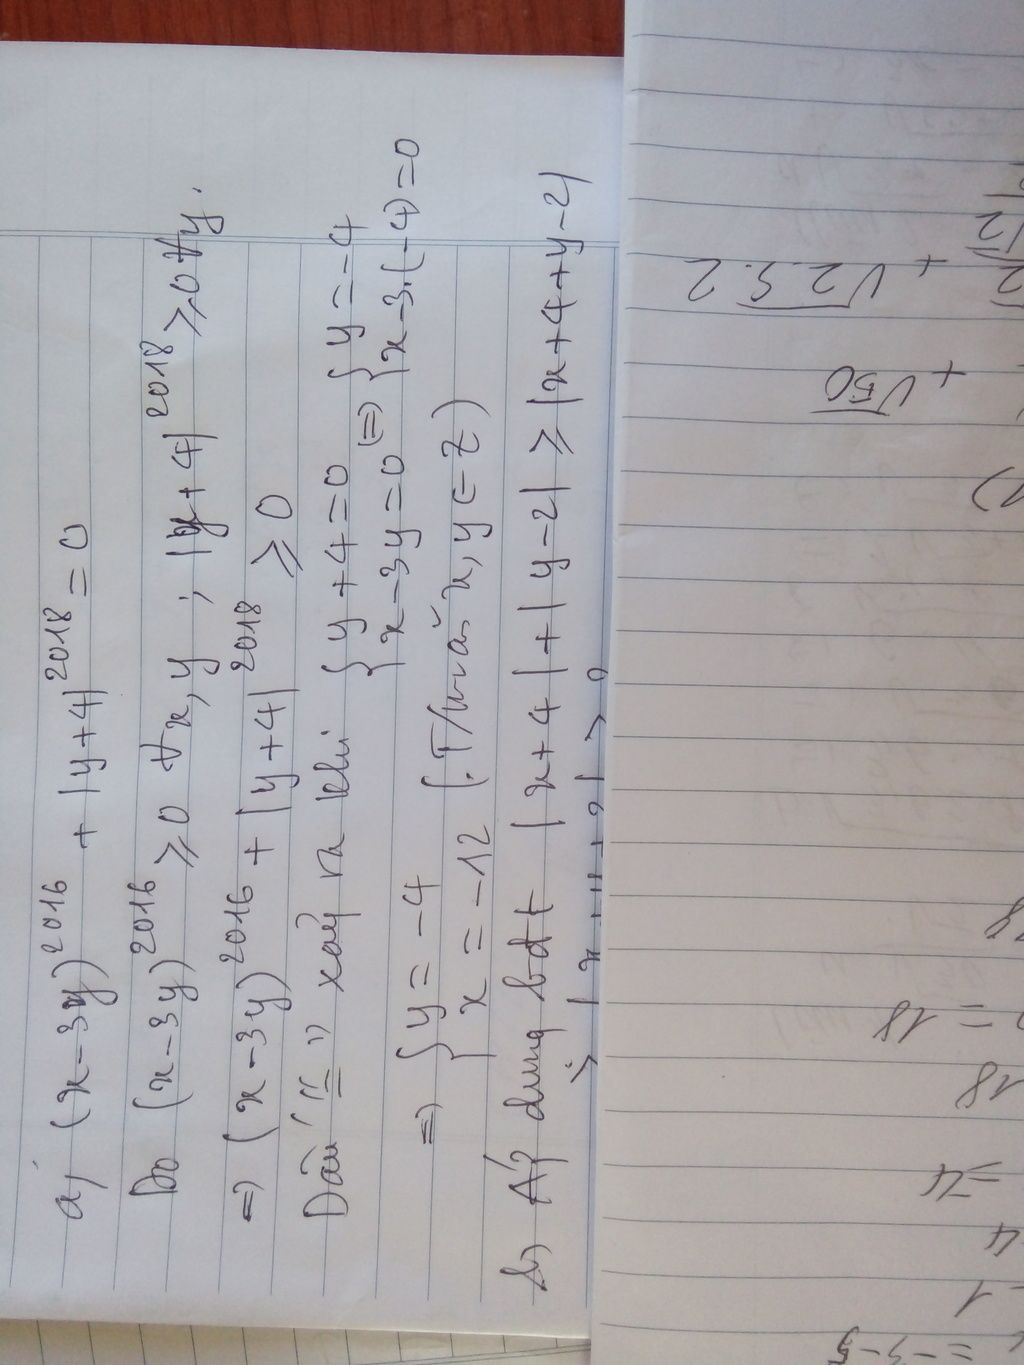 a, (x-3y)^2016 + |y+4|^2018 = 0
Do (x-3y)^2016 ≥ 0 ∀x,y ; |y+4|^2018 ≥ 0 ∀y.
⇒ (x-3y)^2016 + |y+4|^2018 ≥ 0
Dấu "=" xảy ra khi { y+4=0 ⇔ { y=-4
{ x-3y=0 { x-3.(-4)=0
⇒ { y=-4
{ x=-12 (T/mãn x,y ∈ Z)
b) Áp dụng bđt |x+4|+|y-2| ≥ |x+4+y-2|
≥ |x+y+2| ≥
+ √2.5.2
+ √50
1)
= 18
18
=4
4
1